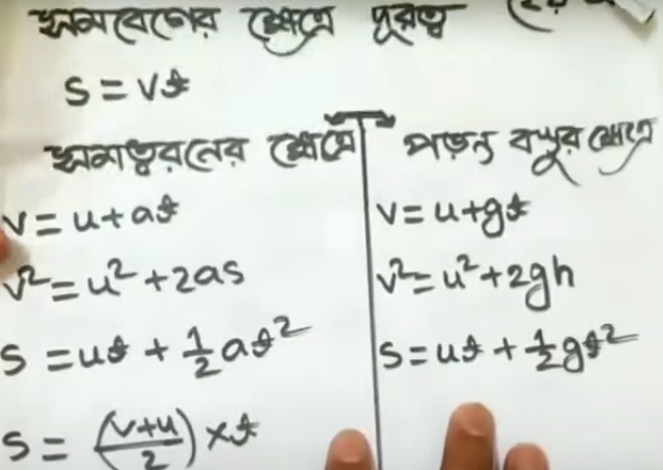 সমবেগের ক্ষেত্রে দূরত্ব
S = vt
সমত্বরনের ক্ষেত্রে
v = u + at
v² = u² + 2as
s = ut + \frac{1}{2}at²
s = (\frac{v+u}{2}) × t
পড়ন্ত বস্তুর ক্ষেত্রে
v = u + gt
v² = u² + 2gh
s = ut + \frac{1}{2}gt²